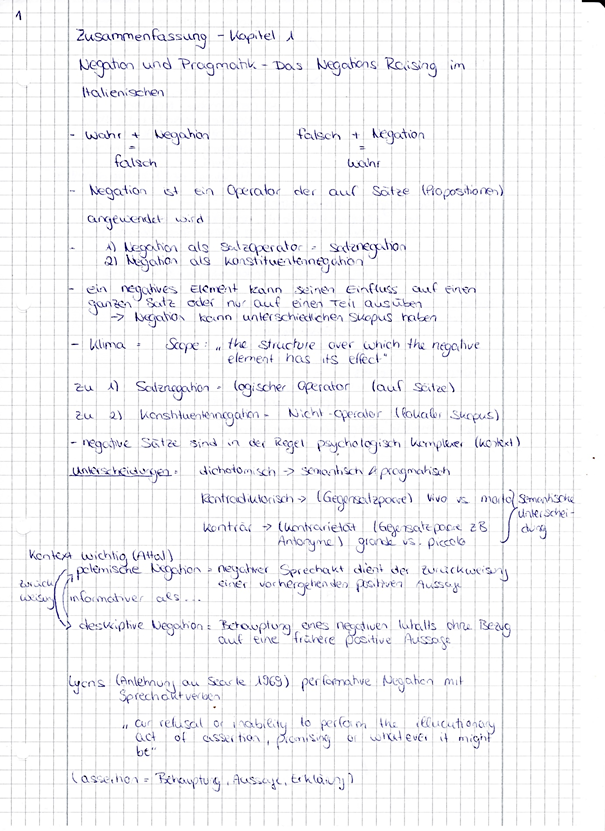 1
Zusammenfassung - Kapitel 1
Negation und Pragmatik - Das Negations Raising im
Italienischen
- wahr + Negation falsch + Negation
= =
falsch wahr
- Negation ist ein Operator der auf Sätze (Propositionen)
angewendet wird
- 1) Negation als Satzoperator = Satznegation
2) Negation als Konstituentennegation
- ein negatives Element kann seinen Einfluss auf einen
ganzen Satz oder nur auf einen Teil ausüben
-> Negation kann unterschiedlichen Skopus haben
- Klima = Scope: „the structure over which the negative
element has its effect"
zu 1) Satznegation = logischer Operator (auf Sätze)
zu 2) Konstituentennegation - Nicht-Operator (lokaler Skopus)
- negative Sätze sind in der Regel psychologisch komplexer (Kontext)
Unterscheidungen: dichotomisch -> semantisch & pragmatisch
Kontradiktorisch -> (Gegensatzpaare) vivo vs. morto
Konträr -> (Kontrarietät (Gegensatzpaare zB
Antonyme) grande vs. piccolo
Semantische
Unterschei-
dung
Kontext wichtig (Attal)
zurück
weisung
polemische Negation = negativer Sprechakt dient der Zurückweisung
einer vorhergehenden positiven Aussage
informativer als...
-> deskriptive Negation = Behauptung eines negativen Inhalts ohne Bezug
auf eine frühere positive Aussage
Lyons (Anlehnung an Searle 1969) performative Negation mit
Sprechaktverben
„our refusal or inability to perform the illucutionary
act of assertion, promising or whatever it might
be"
(assertion = Behauptung, Aussage, Erklärung)